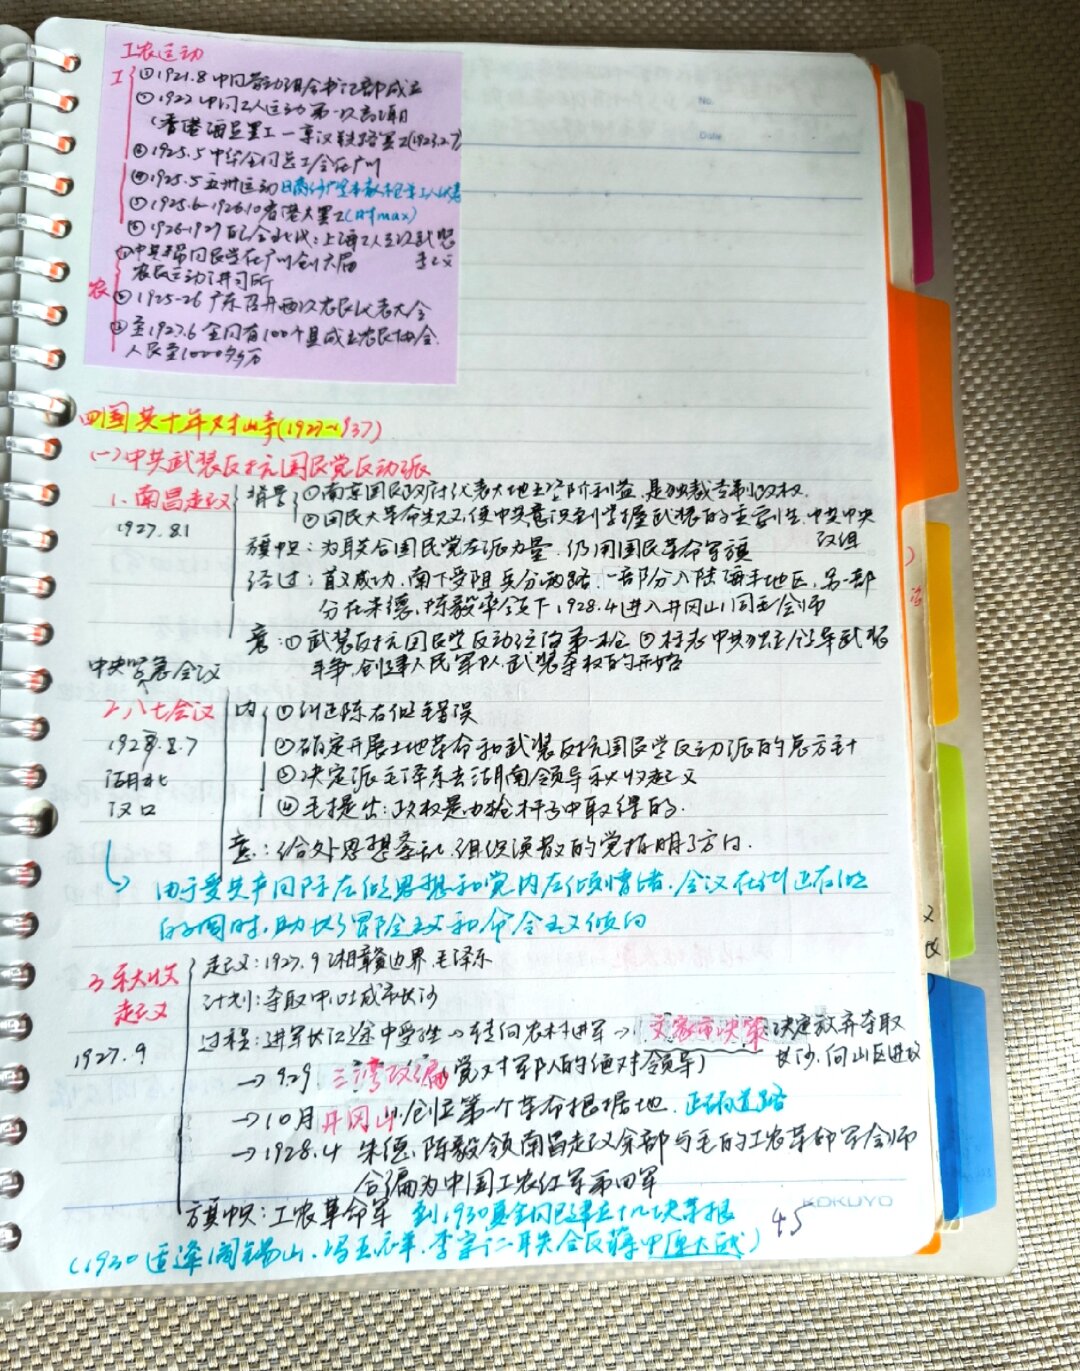 工农运动
工 ①1921.8 中国劳动组合书记部成立
②1922 中国工人运动第一次高潮
(香港海员罢工—京汉铁路罢工(1923.2.7)
③1925.5 中华全国总工会在广州
④1925.5 五卅运动
⑤1925.6-1926.10 省港大罢工(时max)
⑥1926-1927 配合北伐:上海工人三次武装
起义
农 ①中共 国民党在广州创六届
农民运动讲习所
②1925-26 广东召开两次农民代表大会
③至1927.6 全国有100个县成立农民协会
人民至1000多万
No.
Date
四国共十年对峙(1927~1937)
(一)中共武装反抗国民党反动派
1.南昌起义 背景 ①南京国民政府代表大地主 阶利益,是独裁专制政权.
1927.8.1 ②国民大革命失败,使中共意识到掌握武装的重要性,中共中央
改组
旗帜:为联合国民党左派力量,仍用国民革命军旗
经过:首义成功,南下受阻 兵分两路,一部分入陆海丰地区,另一部
分在朱德,陈毅率领下,1928.4进入井冈山同毛会师
意:①武装反抗国民党反动统治第一枪 ②标志中共独立领导武装
斗争,创建人民军队,武装夺权的开始
中央紧急会议
2.八七会议 内 ①纠正陈右倾错误
1927.8.7 ②确定开展土地革命和武装反抗国民党反动派的总方针
湖北 ③决定派毛泽东去湖南领导秋收起义
汉口 ④毛提出:政权是由枪杆子中取得的.
意:给处思想紊乱,组织涣散的党指明了方向.
由于受共产国际左倾思想和党内左倾情绪,会议在纠正右倾
的同时,助长了冒险主义和命令主义倾向
3.秋收 起义:1927.9 湘赣边界,毛泽东
起义 计划:夺取中心城市长沙
1927.9 过程:进军长江途中受挫→转向农村进军→文家市决策:决定放弃夺取
长沙,向山区进攻
→9.29 三湾改编(党对军队的绝对领导)
→10月井冈山,创立第一个革命根据地,正确道路
→1928.4 朱德,陈毅领南昌起义余部与毛的工农革命军会师
合编为中国工农红军第四军
旗帜:工农革命军 到1930夏全国已建立十几块革根
(1930适逢阎锡山,冯玉祥,李宗仁联合反蒋中原大战)
45
KOKUYO